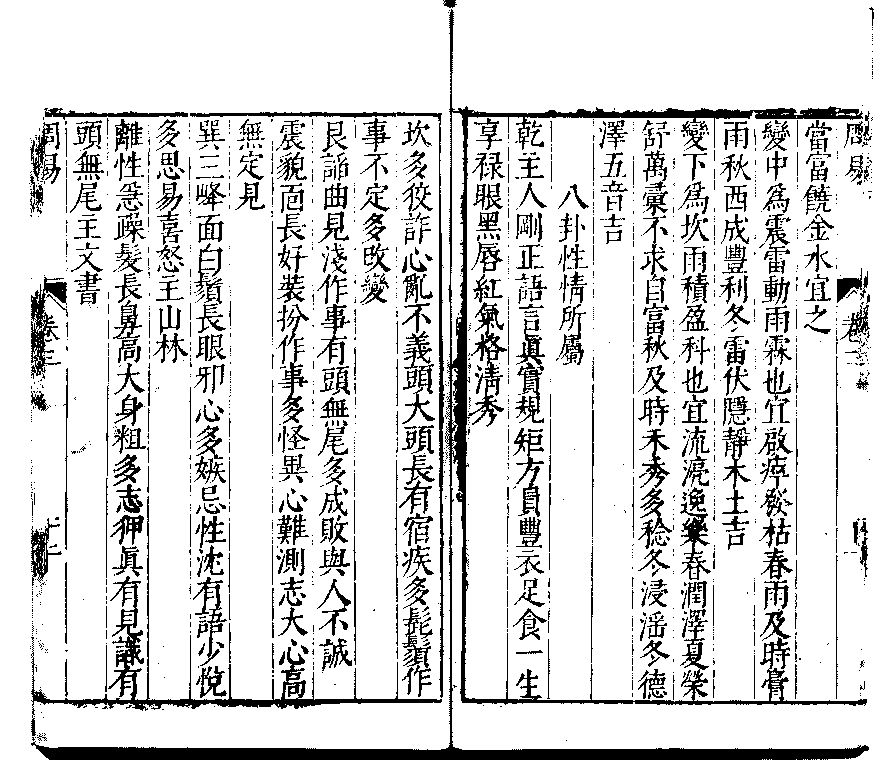 周易
卷三
當富饒金水宜之
變中爲震雷動雨霖也宜啟瘁發枯春雨及時膏
雨秋西成豐利冬雷伏隱靜木土吉
變下爲坎雨積盈科也宜流浣逸樂春潤澤夏榮
舒萬彙不求自富秋及時禾秀多稔冬浸滛冬德
澤五音吉
八卦性情所屬
乾主人剛正語言眞實規矩方員豐衣足食一生
享祿眼黑唇紅氣格清秀
坎多狡詐心亂不義頭大頭長有宿疾多髭鬚作
事不定多攺變
艮謟曲見淺作事有頭無尾多成敗與人不誠
震貌靣長好裝扮作事多怪異心難測志大心高
無定見
巽三峰面白鬚長眼邪心多嫉忌性沈有語少悅
多思易喜怒主山林
離性急躁髮長鼻高大身粗多志神眞有見識有
頭無尾主文書
周易
卷三